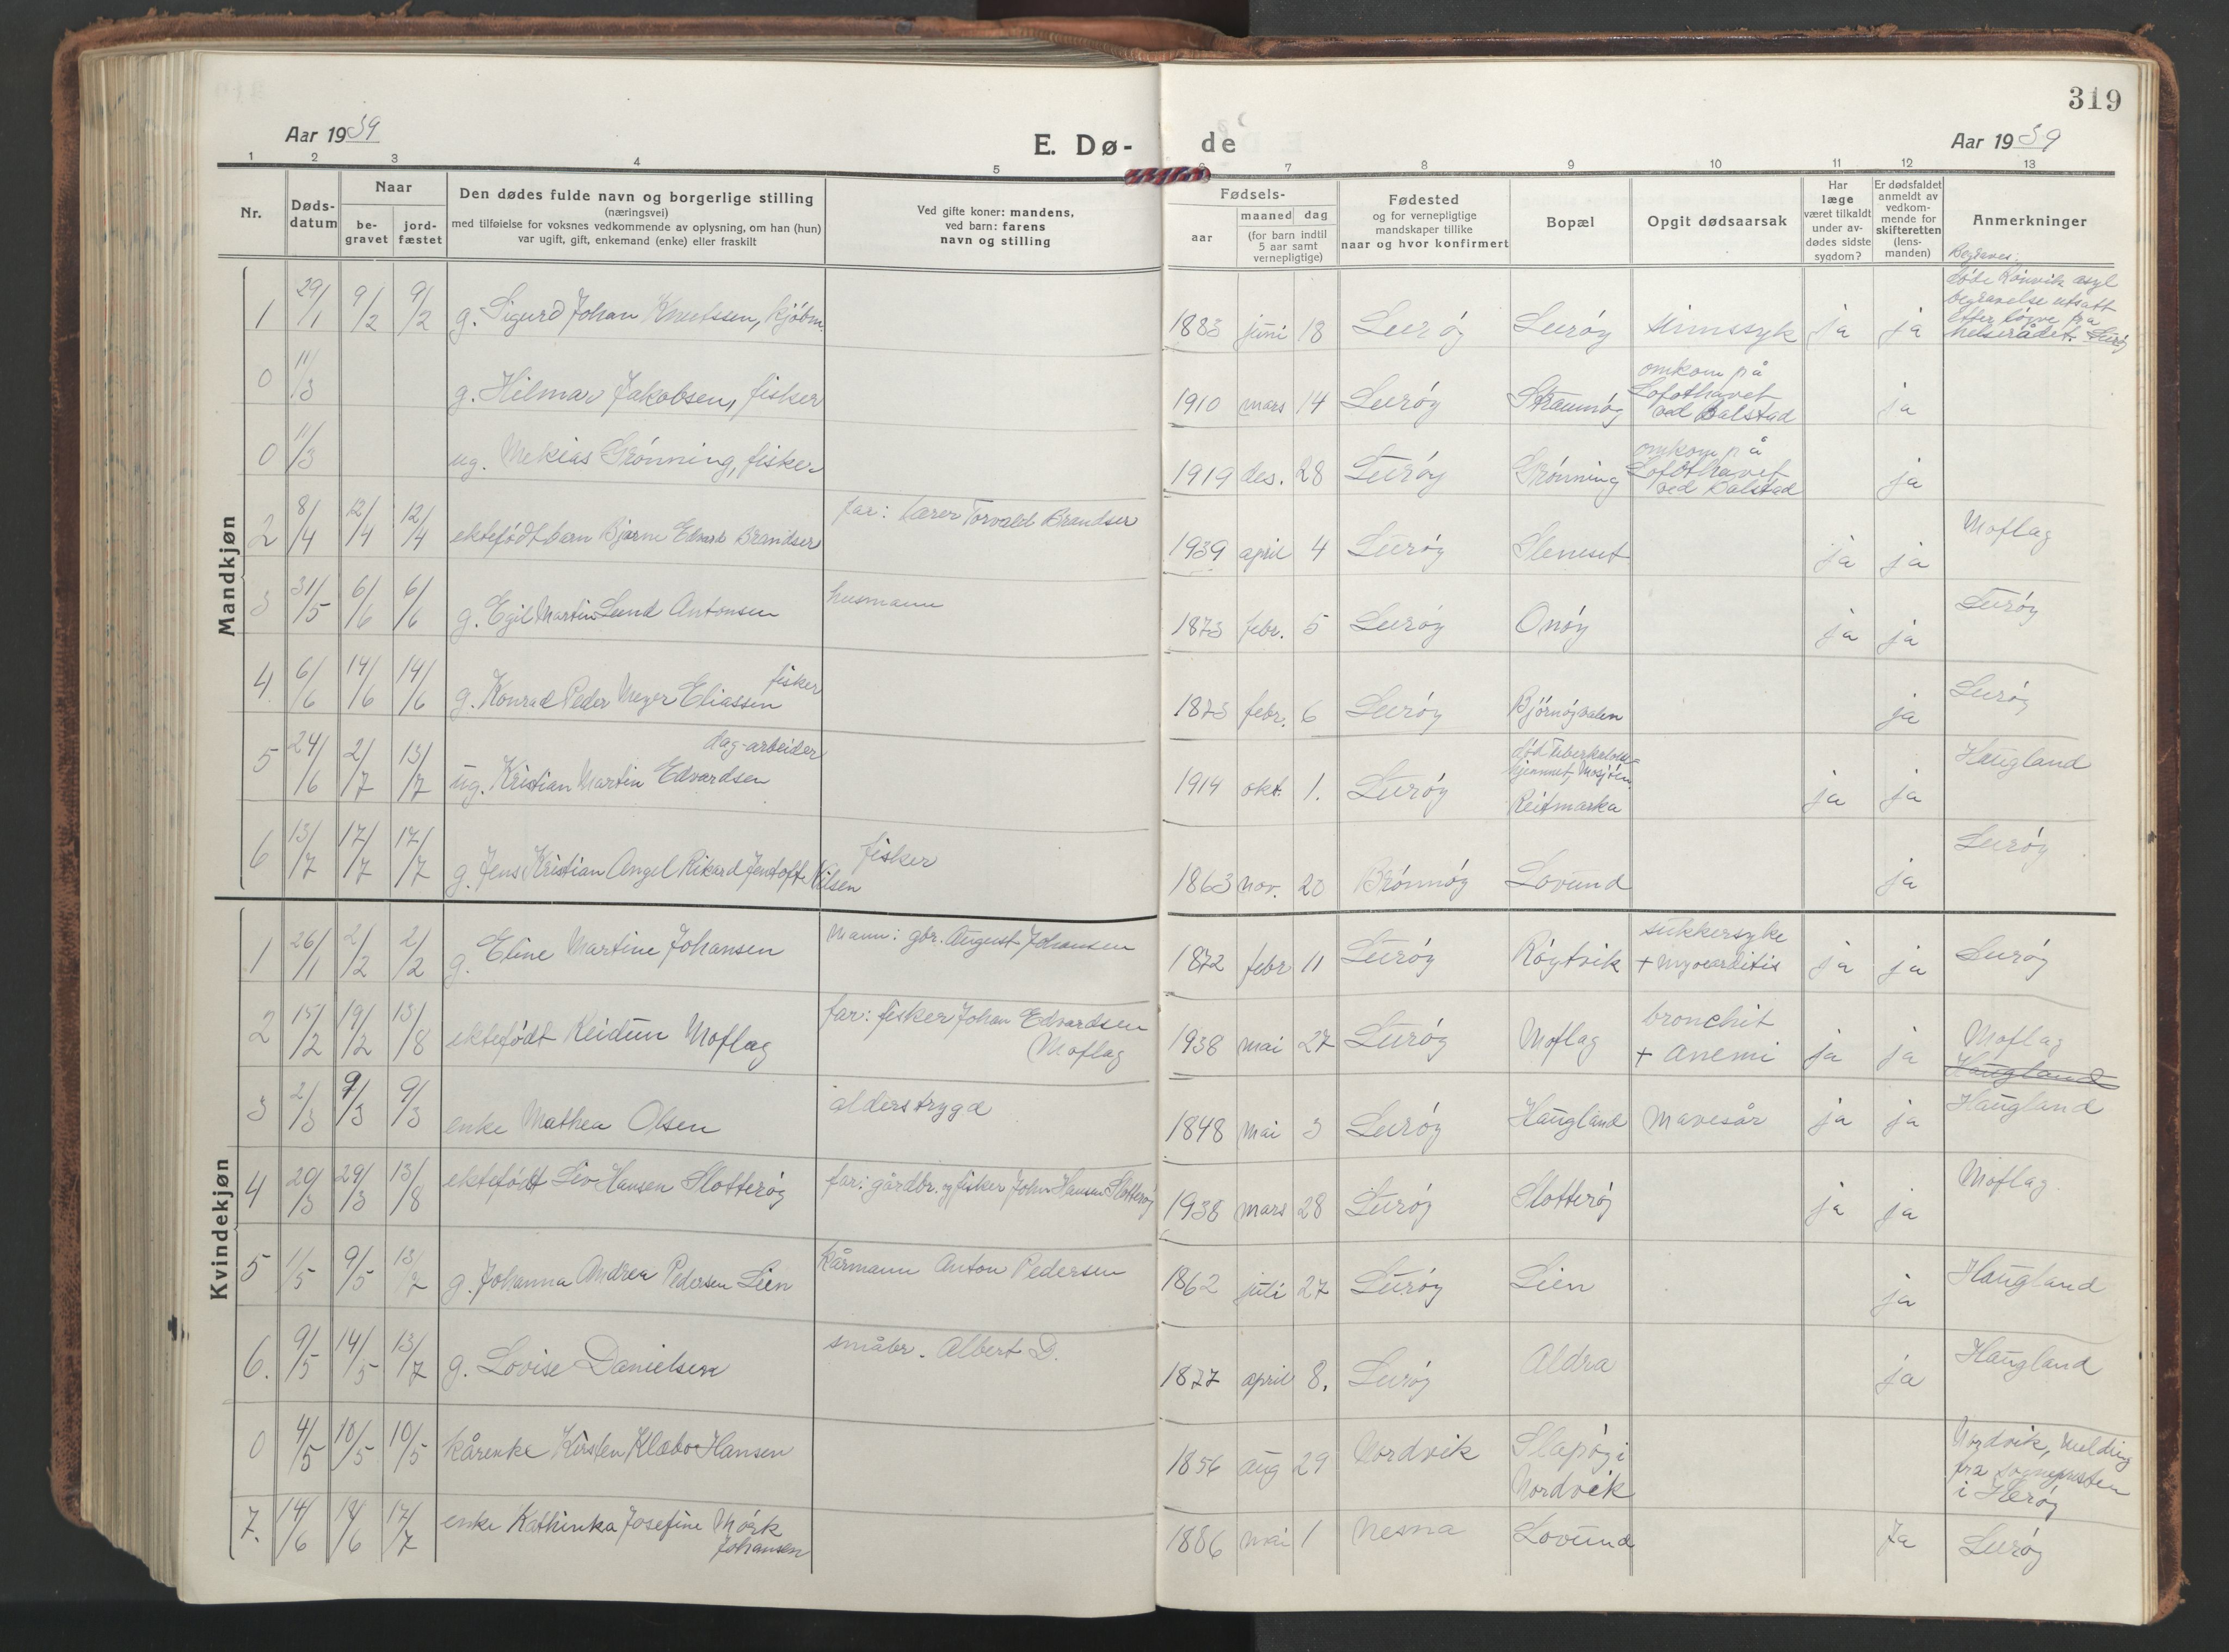 319
Aar 1939
E. Dø-
de
Aar 1939
1 2 3 4 5 6 7 8 9 10 11 12 13
Nr.
Døds-
datum
Naar
be-
gravet
jord-
fæstet
Den dødes fulde navn og borgerlige stilling
(næringsvei)
med tilføielse for voksnes vedkommende av oplysning, om han (hun)
var ugift, gift, enkemand (enke) eller fraskilt
Ved gifte koner: mandens,
ved barn: farens
navn og stilling
Fødsels-
aar
maaned dag
(for barn indtil
5 aar samt
vernepligtige)
Fødested
og for vernepligtige
mandskaper tillike
naar og hvor konfirmert
Bopæl
Opgit dødsaarsak
Har
læge
været tilkaldt
under av-
dødes sidste
sygdom?
Er dødsfaldet
anmeldt av
vedkom-
mende for
skifteretten
(lens-
manden)
Anmerkninger
Begraves:
Mandkjøn
1 29/1 9/2 9/2 g. Sigurd Johan Knutssen, kjøbm. 1883 juni 18 Lurøy Lurøy sinnssyk ja ja
døde Rønvik asyl
begravelse utsatt
efter løyve fra
helserådet. Lurøy
0 11/3 g. Hilmar Jakobsen, fisker 1910 mars 14 Lurøy Straumøy omkom på
Lofothavet
ved Balstad ja
0 11/3 ug. Mekias Grønning, fisker 1919 des. 28 Lurøy Grønning omkom på
Lofothavet
ved Balstad ja
2 8/4 12/4 12/4 ektefødt barn Bjarne Edvard Brandser far: lærer Torvald Brandser 1939 april 4 Lurøy Sleneset ja ja Moflag
3 31/5 6/6 6/6 g. Egil Martin Lund Antonsen husmann 1873 febr. 5 Lurøy Onøy ja ja Lurøy
4 6/6 14/6 14/6 g. Konrad Peder Meyer Eliassen fisker 1873 febr. 6 Lurøy Bjørnøyvalen ja Lurøy
5 24/6 2/7 13/7 ug. Kristian Martin Edvardsen dag-arbeider 1914 okt. 1. Lurøy død Tuberkulose-
hjemmet, Mosjøen
Reitmarka ja ja Haugland
6 13/7 17/7 17/7 g. Jens Kristian Angel Rikard Jentoft Nilsen fisker 1863 nov. 20 Brønnøy Lovund ja Lurøy
Kvindekjøn
1 26/1 2/2 2/2 g. Eline Martine Johansen Mann: gbr. August Johansen 1872 febr 11 Lurøy Røytvik sukkersyke
+ myocarditis ja ja Lurøy
2 15/2 19/2 13/8 ektefødt Reidun Moflag far: fisker Johan Edvardsen
Moflag 1938 mai 27 Lurøy Moflag bronchit
+ anemi ja ja Moflag
Haugland
3 2/3 9/3 9/3 enke Mathea Olsen alderstrygd 1848 mai 3 Lurøy Haugland Mavesår ja ja Haugland
4 20/3 29/3 13/8 ektefødt Liv Hansen Slotterøy far: gårdbr. og fisker John Hansen Slotterøy 1938 mars 28 Lurøy Slotterøy ja ja Moflag
5 1/5 9/5 13/7 g. Johanna Andrea Pedersen Lien Kårmann Anton Pedersen 1862 juli 27 Lurøy Lien ja Haugland
6. 9/5 14/5 13/7 g. Lovise Danielsen småbr. Albert D. 1877 april 8. Lurøy Aldra ja Haugland
0 4/5 10/5 10/5 kårenke Kirsten Klæboe Hansen 1856 aug 29 Nordvik Slapøy i
Nordvik Nordvik, Melding
fra sognepresten
i Herøy
7. 14/6 18/6 17/7 enke Kathinka Josefine Mørk
Johansen 1886 mai 1 Nesna Lovund Ja Lurøy